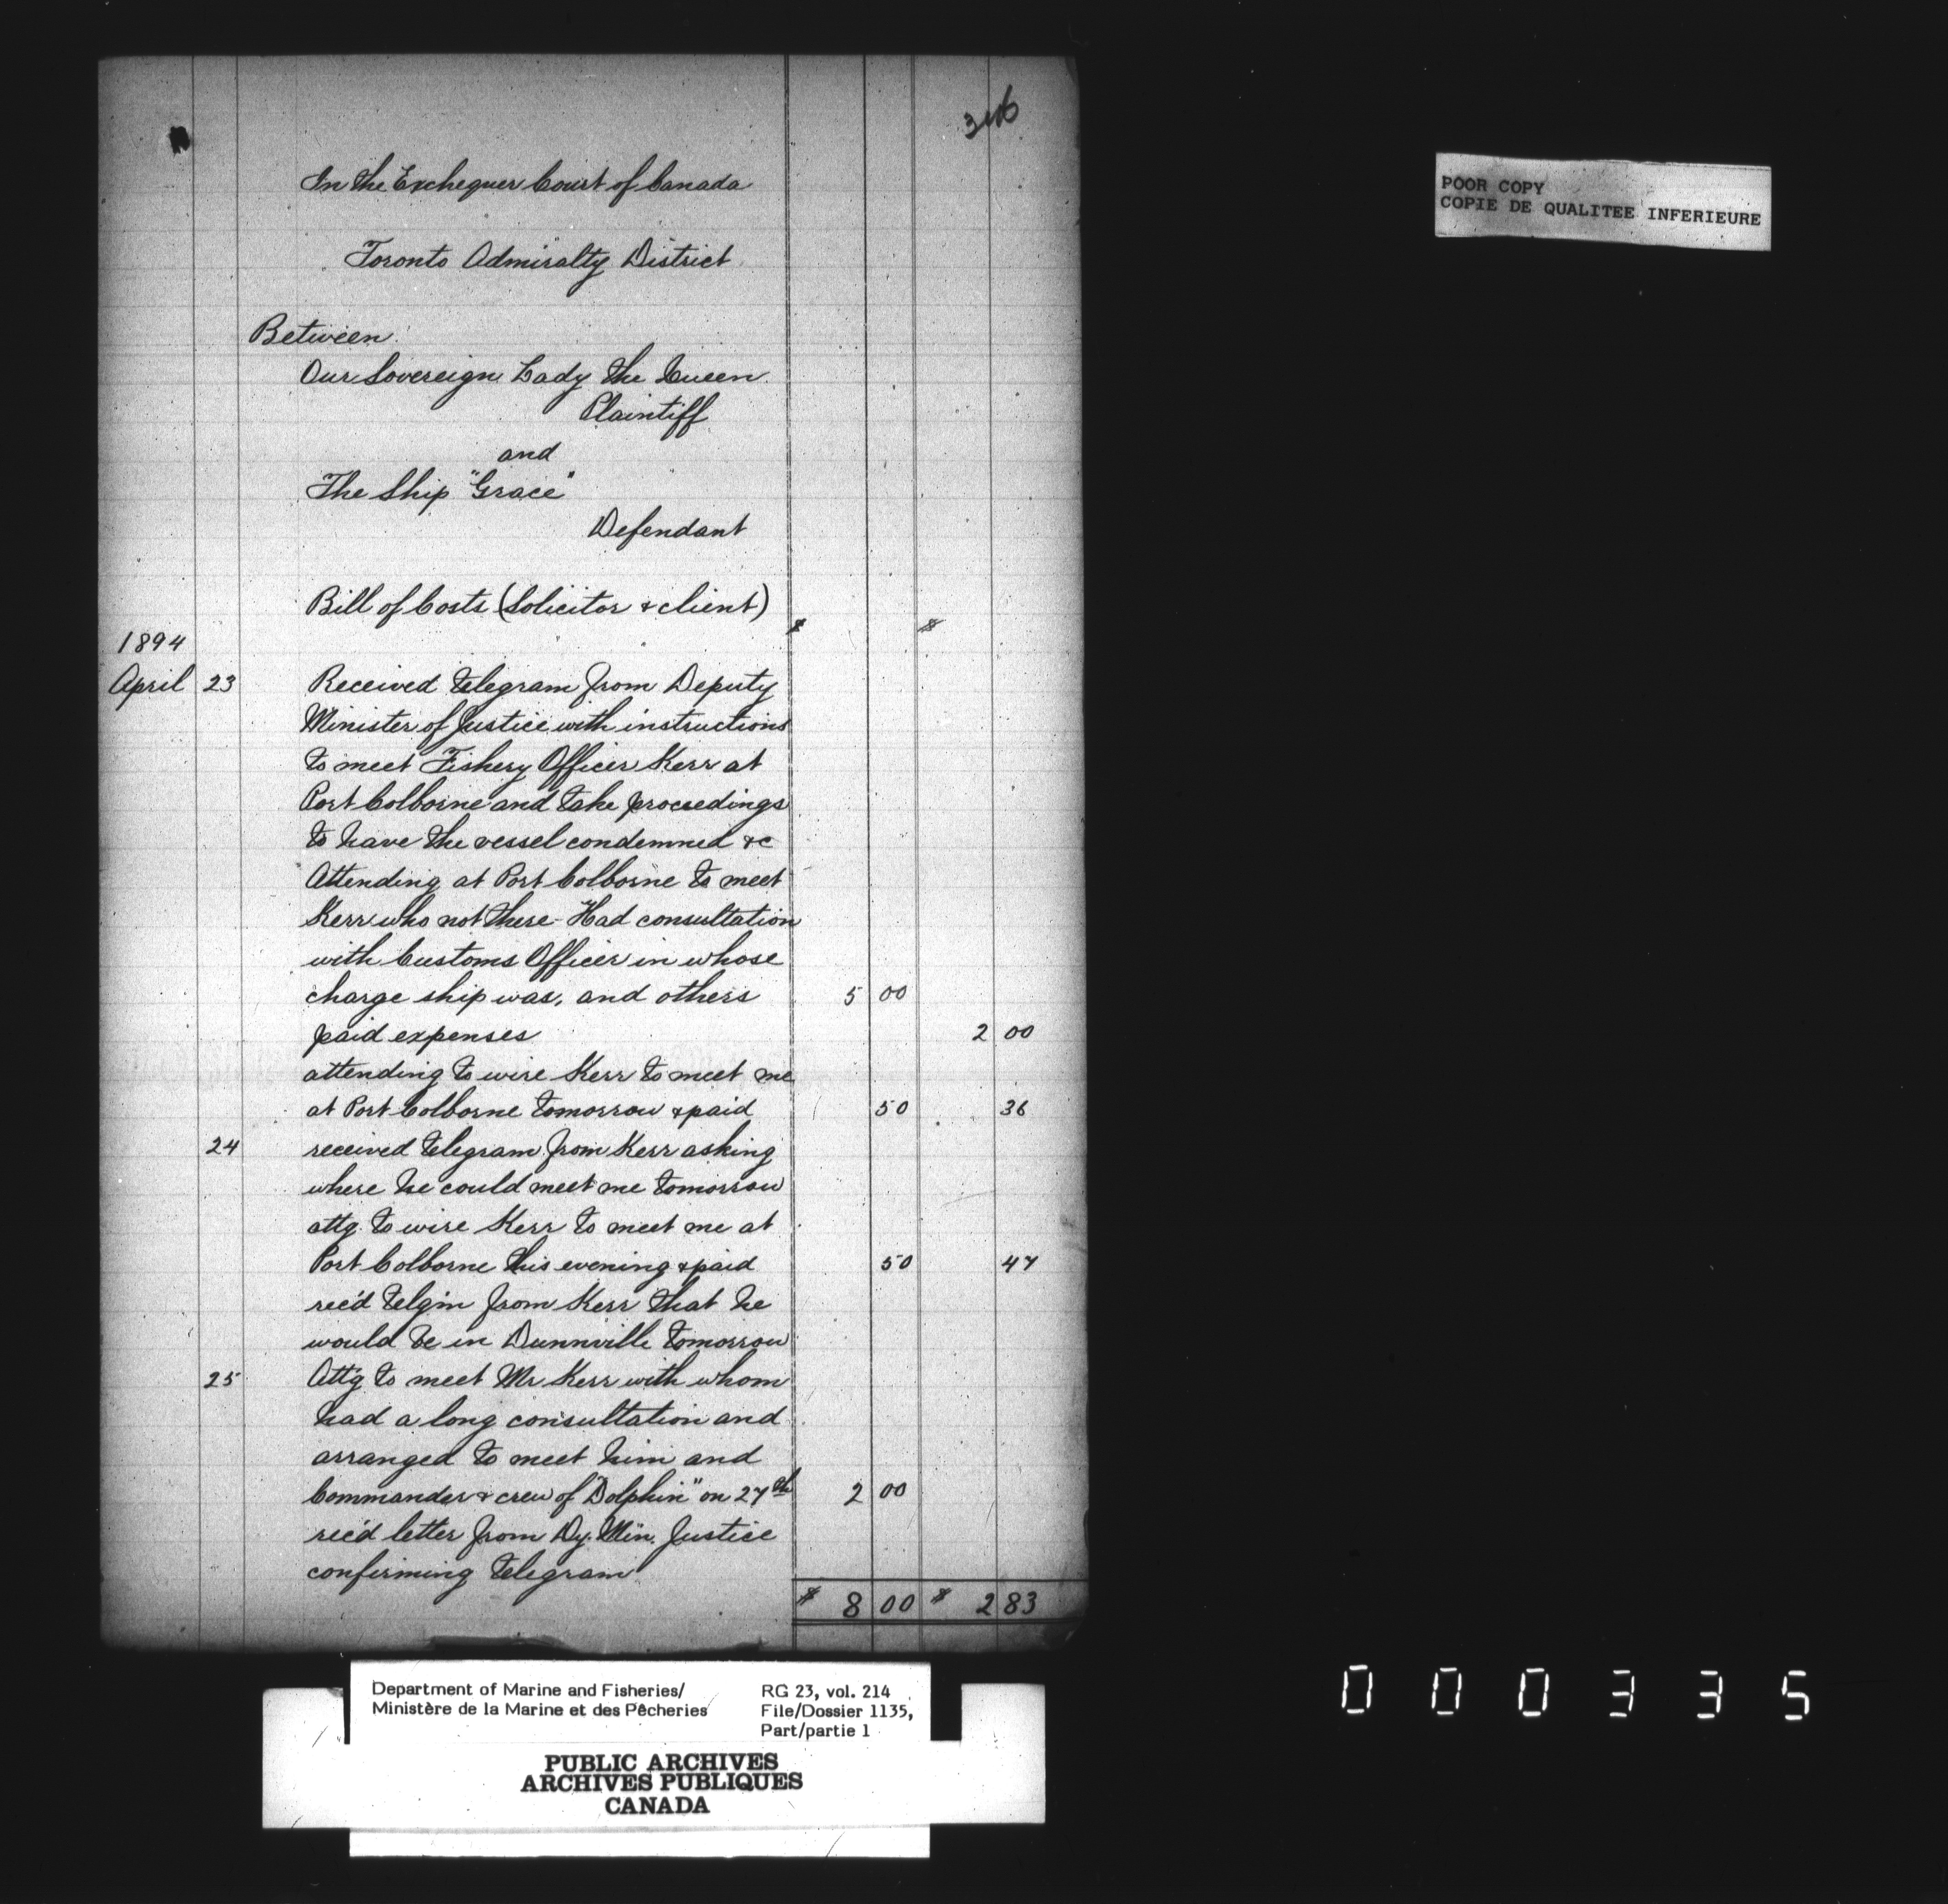 346
In the Exchequer Court of Canada
Toronto Admiralty District
Between
Our Sovereign Lady the Queen
Plaintiff
and
The Ship "Grace"
Defendant
Bill of Costs (Solicitor & client)
$ $
1894
April 23 Received telegram from Deputy
Minister of Justice with instructions
to meet Fishery Officer Kerr at
Port Colborne and take proceedings
to have the vessel condemned &c
Attending at Port Colborne to meet
Kerr who not there - Had consultation
with Customs Officer in whose
charge ship was, and others 5 00
paid expenses 2 00
attending to wire Kerr to meet me
at Port Colborne tomorrow & paid 50 36
24 received telegram from Kerr asking
where he could meet me tomorrow
attg to wire Kerr to meet me at
Port Colborne this evening & paid 50 47
rec'd telg'm from Kerr that he
would be in Dunnville tomorrow
25 Attg to meet Mr Kerr with whom
had a long consultation and
arranged to meet him and
Commander & crew of "Dolphin" on 27th 2 00
rec'd letter from Dy. Min. Justice
confirming telegram
$ 8 00 $ 2 83
POOR COPY
COPIE DE QUALITEE INFERIEURE
Department of Marine and Fisheries/
Ministère de la Marine et des Pêcheries
RG 23, vol. 214
File/Dossier 1135,
Part/partie 1
PUBLIC ARCHIVES
ARCHIVES PUBLIQUES
CANADA
000335